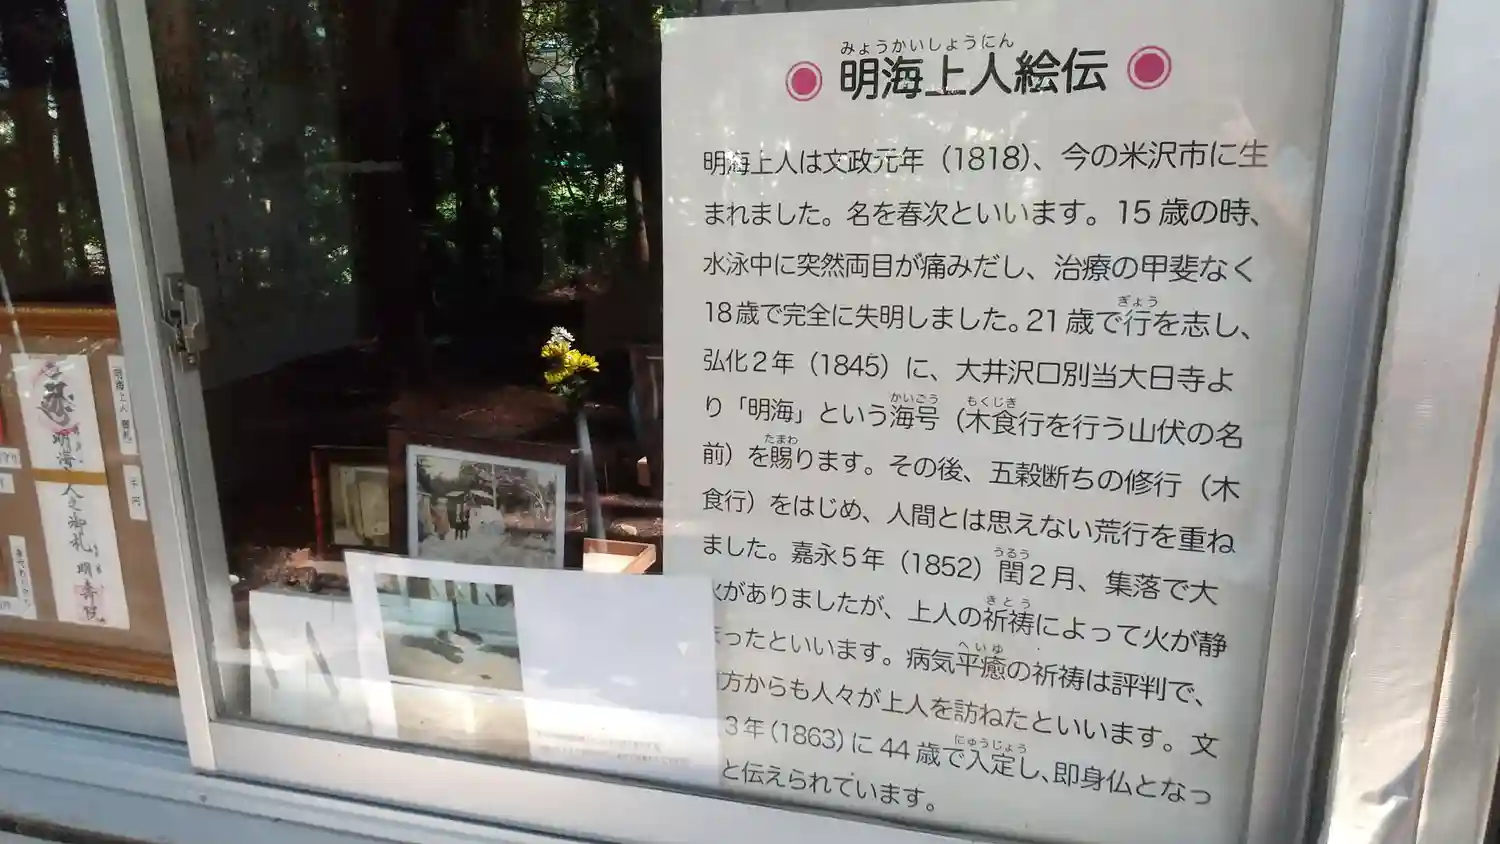 みょうかいしょうにん
明海上人絵伝
明海上人は文政元年（1818）、今の米沢市に生
まれました。名を春次といいます。15歳の時、
水泳中に突然両目が痛みだし、治療の甲斐なく
18歳で完全に失明しました。21歳で行を志し、
ぎょう
弘化2年（1845）に、大井沢口別当大日寺よ
り「明海」という海号（木食行を行う山伏の名
かいごう
もくじき
前）を賜ります。その後、五穀断ちの修行（木
たまわ
食行）をはじめ、人間とは思えない荒行を重ね
ました。嘉永5年（1852）閏2月、集落で大
うるう
火がありましたが、上人の祈祷によって火が静
きとう
まったといいます。病気平癒の祈祷は評判で、
へいゆ
方からも人々が上人を訪ねたといいます。文
3年（1863）に44歳で入定し、即身仏となっ
にゅうじょう
と伝えられています。
明海
上人之御札
明寿院
明海上人御札
千円